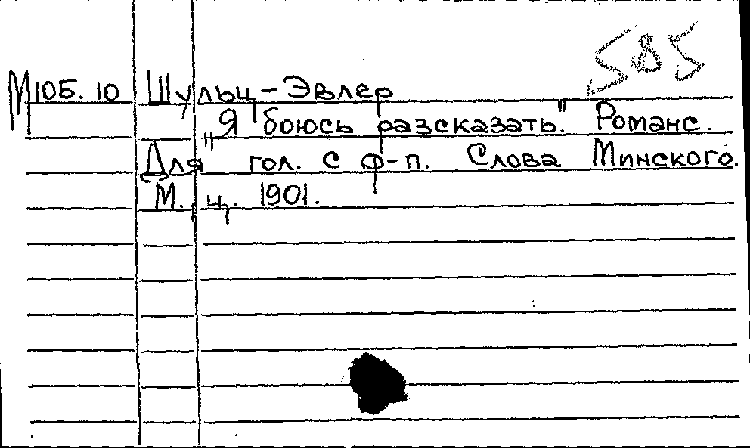 585
М 106. 10 Шульц-Эвлер
„Я боюсь разсказать." Романс.
Для гол. с ф-п. Слова Минского.
М., ц. 1901.